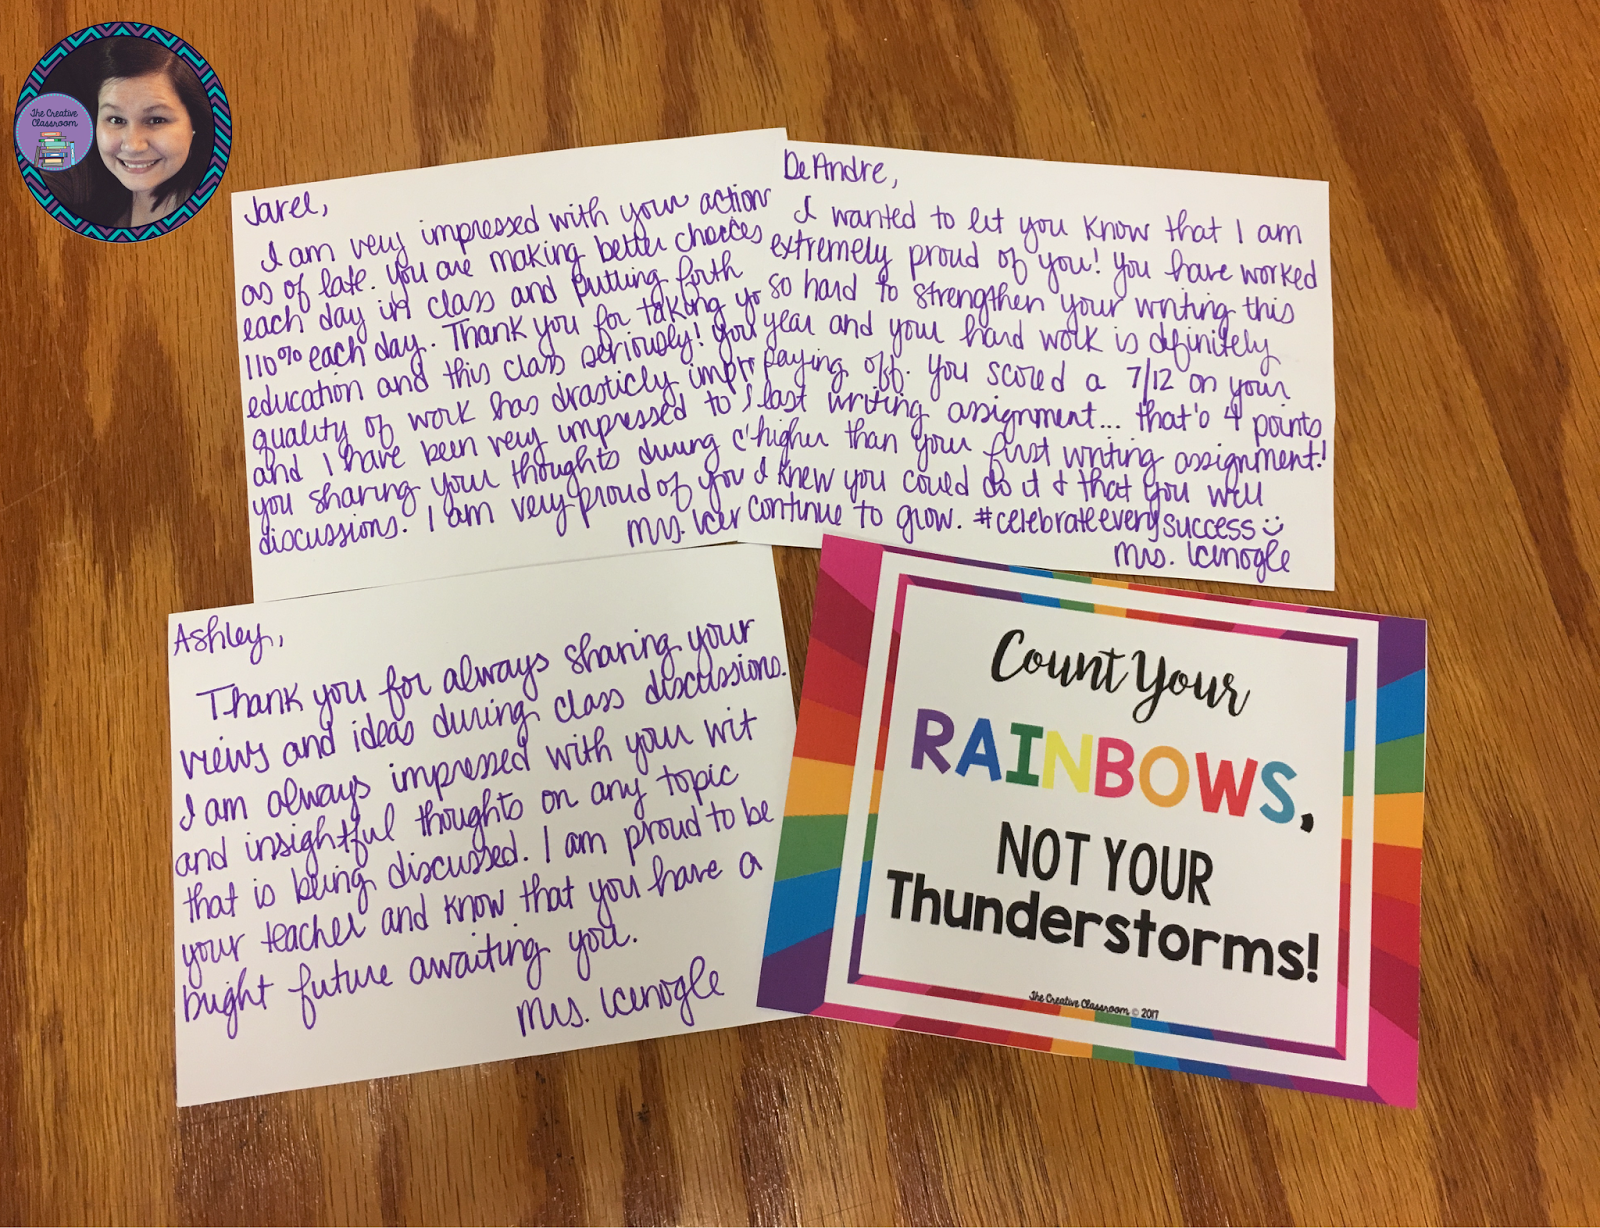 The Creative
Classroom
Jarel,
I am very impressed with your action
as of late. you are making better choices
each day in class and putting forth
110% each day. Thank you for taking yo
education and this class seriously! you
quality of work has drasticly impr
and I have been very impressed to
you sharing your thoughts during c
discussions. I am very proud of you
Mrs. Icen
DeAndre,
I wanted to let you know that I am
extremely proud of you! you have worked
so hard to strengthen your writing this
year and your hard work is definitely
paying off. you scored a 7/12 on your
last writing assignment... that's 4 points
higher than your first writing assignment!
I knew you could do it & that you will
continue to grow. #celebrateeverysuccess
Mrs. Icenogle
Ashley,
Thank you for always sharing your
views and ideas during class discussions.
I am always impressed with your wit
and insightful thoughts on any topic
that is being discussed. I am proud to be
your teacher and know that you have a
bright future awaiting you.
Mrs. Icenogle
Count Your
RAINBOWS,
NOT YOUR
Thunderstorms!
The Creative Classroom © 2017